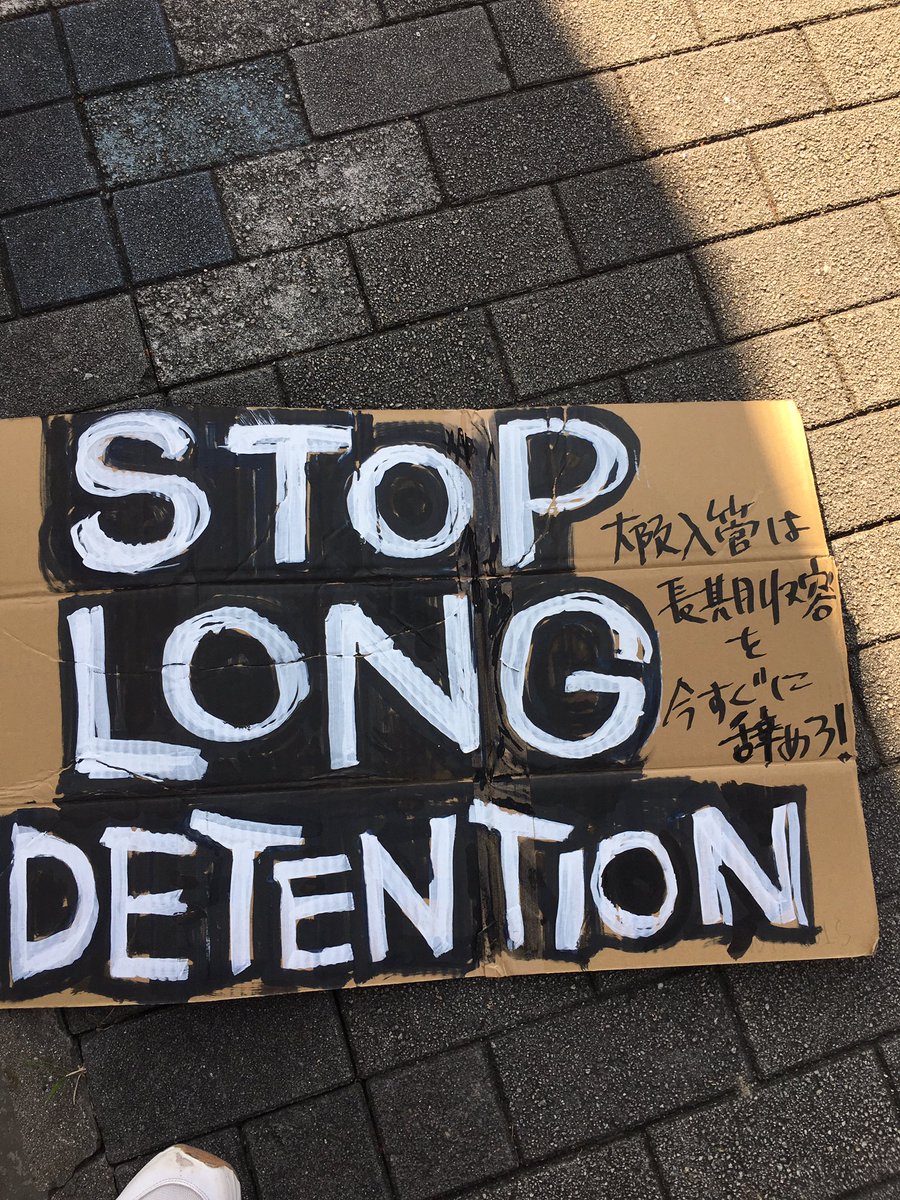 STOP
LONG
DETENTION
大阪入管は
長期収容
を
今すぐに
辞めろ!